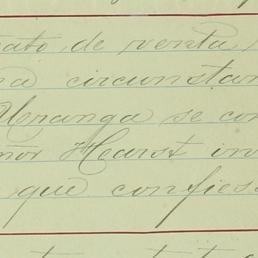 trato de venta,
na circunstan
Uranga se con
eñor Hearst in
que confies